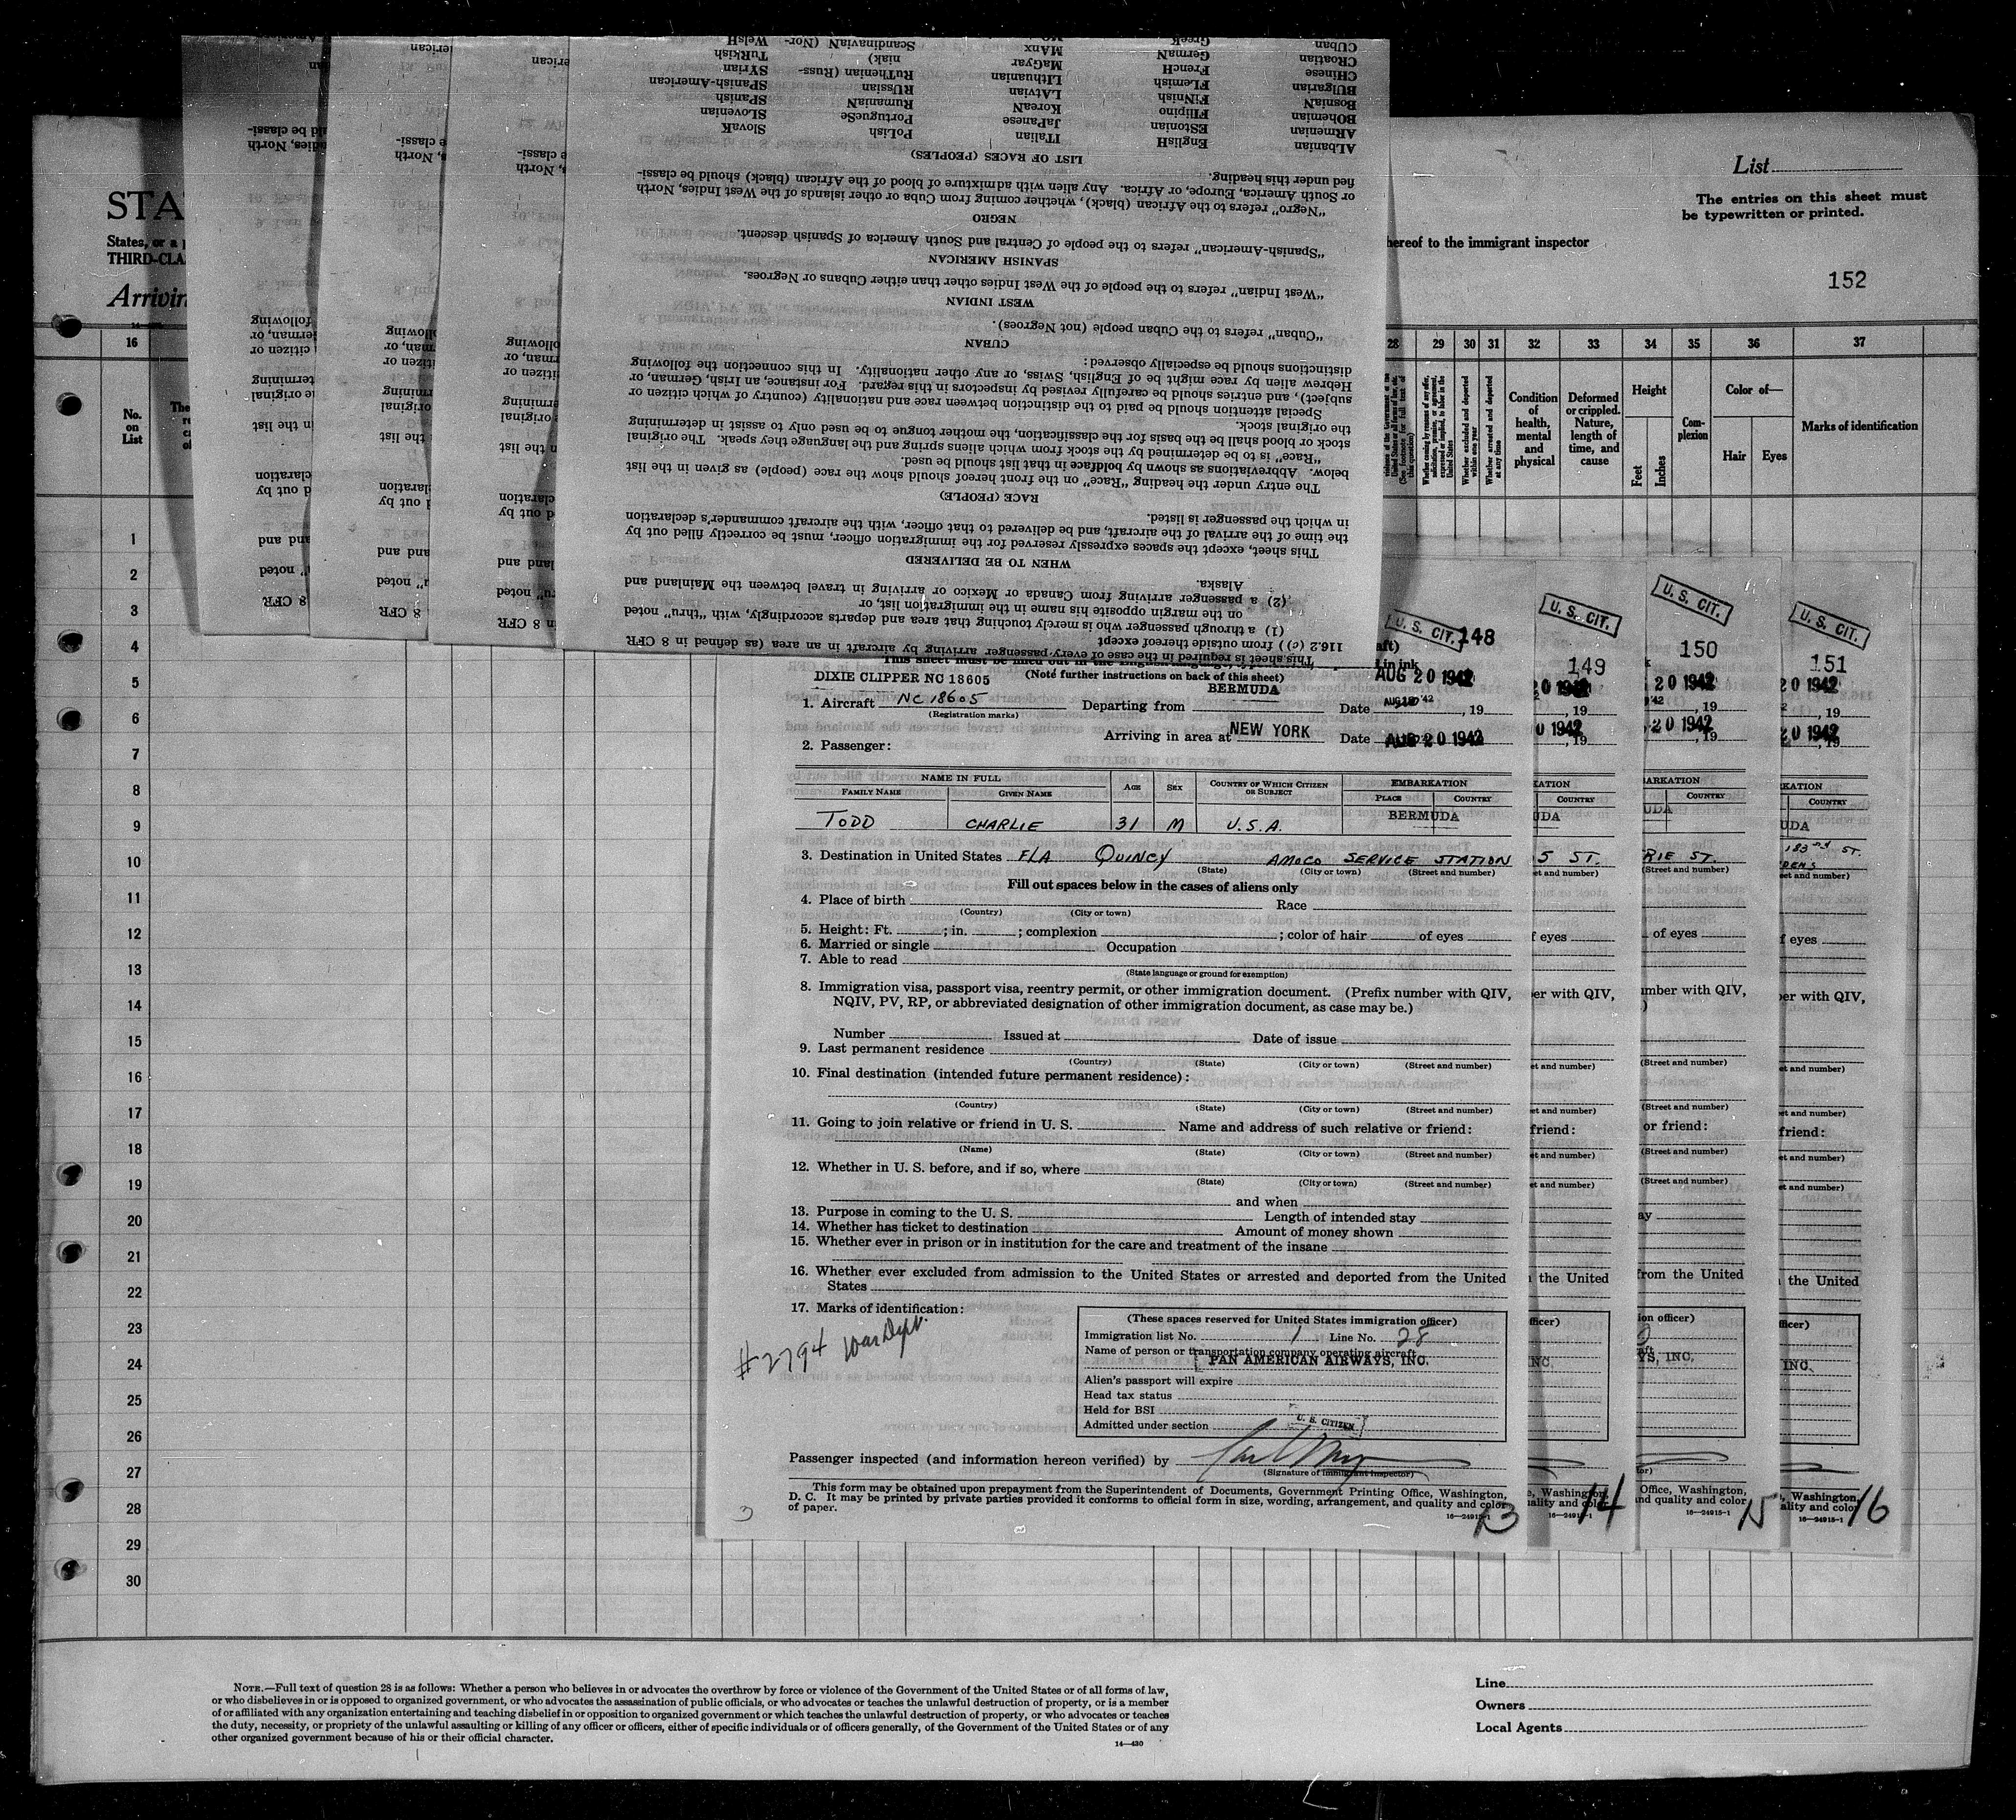 List
The entries on this sheet must
be typewritten or printed.
hereof to the immigrant inspector
152
STA
States, or a
THIRD-CLA
Arrivin
16
28 29 30 31 32 33 34 35 36 37
No.
on
List
Whether excluded and deported within one year
Whether arrested and deported at any time
Condition
of
health,
mental
and
physical
Deformed
or crippled.
Nature,
length of
time, and
cause
Height
Feet
Inches
Com-
plexion
Color of—
Hair Eyes
Marks of identification
1
2
3
4
5
6
7
8
9
10
11
12
13
14
15
16
17
18
19
20
21
22
23
24
25
26
27
28
29
30
This sheet is required in the case of every passenger arriving by aircraft in an area (as defined in 8 CFR
116.2 (c)) from outside thereof except
(1) a through passenger who is merely touching that area and departs accordingly, with "thru" noted
on the margin opposite his name in the immigration list, or
(2) a passenger arriving from Canada or Mexico or arriving in travel between the Mainland and
Alaska.
WHEN TO BE DELIVERED
This sheet, except the spaces expressly reserved for the immigration officer, must be correctly filled out by
the time of the arrival of the aircraft, and be delivered to that officer, with the aircraft commander's declaration
in which the passenger is listed.
RACE (PEOPLE)
The entry under the heading "Race" on the front hereof should show the race (people) as given in the list
below. Abbreviations as shown by boldface in that list should be used.
"Race" is to be determined by the stock from which aliens spring and the language they speak. The original
stock or blood shall be the basis for the classification, the mother tongue to be used only to assist in determining
the original stock.
Special attention should be paid to the distinction between race and nationality (country of which citizen or
subject), and entries should be carefully revised by inspectors in this regard. For instance, an Irish, German, or
Hebrew alien by race might be of English, Swiss, or any other nationality. In this connection the following
distinctions should be especially observed:
CUBAN
"Cuban" refers to the Cuban people (not Negroes).
WEST INDIAN
"West Indian" refers to the people of the West Indies other than either Cubans or Negroes.
SPANISH AMERICAN
"Spanish-American" refers to the people of Central and South America of Spanish descent.
NEGRO
"Negro" refers to the African (black), whether coming from Cuba or other islands of the West Indies, North
or South America, Europe, or Africa. Any alien with admixture of blood of the African (black) should be classi-
fied under this heading.
LIST OF RACES (PEOPLES)
ALbanian EnglisH ITalian PoLish SlovaK
ARmenian EStonian JaPanese PortugueSe SLOvenian
BOhemian FIlipino KoreaN RumaniaN SPanish
BosniaN FiNnish LAtvian RUssian SPanish-American
BUlgarian FLemish LIthuanian RuThenian (Russ- SYrian
CHinese FrencH MaGyar niak) TuRkish
CRoatian GermaN MAnx ScandinaviaN (Nor- WelsH
CUban GreeK
U. S. CIT. 148
AUG 20 1942
DIXIE CLIPPER NC 18605
(Note further instructions on back of this sheet)
BERMUDA
1. Aircraft NC 18605 Departing from Date , 19
(Registration marks)
Arriving in area at NEW YORK Date AUG 20 1942
2. Passenger:
NAME IN FULL
FAMILY NAME GIVEN NAME AGE SEX COUNTRY OF WHICH CITIZEN OR SUBJECT EMBARKATION
PLACE COUNTRY
TODD CHARLIE 31 M U.S.A. BERMUDA
3. Destination in United States FLA QUINCY AMOCO SERVICE STATION
(State) (City or town) (Street and number)
Fill out spaces below in the cases of aliens only
4. Place of birth Race
(Country) (City or town)
5. Height: Ft. ; in. ; complexion ; color of hair of eyes
6. Married or single Occupation
7. Able to read
(State language or ground for exemption)
8. Immigration visa, passport visa, reentry permit, or other immigration document. (Prefix number with QIV,
NQIV, PV, RP, or abbreviated designation of other immigration document, as case may be.)
Number Issued at Date of issue
9. Last permanent residence
(Country) (State) (City or town) (Street and number)
10. Final destination (intended future permanent residence):
(Country) (State) (City or town) (Street and number)
11. Going to join relative or friend in U. S. Name and address of such relative or friend:
(Name) (State) (City or town) (Street and number)
12. Whether in U. S. before, and if so, where
(State) (City or town) (Street and number)
and when
13. Purpose in coming to the U. S. Length of intended stay
14. Whether has ticket to destination Amount of money shown
15. Whether ever in prison or in institution for the care and treatment of the insane
16. Whether ever excluded from admission to the United States or arrested and deported from the United
States
17. Marks of identification:
#2794 War Dept.
(These spaces reserved for United States immigration officer)
Immigration list No. 1 Line No. 28
Name of person or transportation company operating aircraft
PAN AMERICAN AIRWAYS, INC.
Alien's passport will expire
Head tax status
Held for BSI
Admitted under section U. S. CITIZEN
Passenger inspected (and information hereon verified) by
(Signature of Immigrant Inspector)
This form may be obtained upon prepayment from the Superintendent of Documents, Government Printing Office, Washington,
D. C. It may be printed by private parties provided it conforms to official form in size, wording, arrangement, and quality and color
of paper.
16—24915-1
3
13
U. S. CIT.
149
14
U. S. CIT.
150
RIE ST.
15
U. S. CIT.
151
183rd ST.
16
NOTE.—Full text of question 28 is as follows: Whether a person who believes in or advocates the overthrow by force or violence of the Government of the United States or of all forms of law,
or who disbelieves in or is opposed to organized government, or who advocates the assassination of public officials, or who advocates or teaches the unlawful destruction of property, or is a member
of or affiliated with any organization entertaining and teaching disbelief in or opposition to organized government or which teaches the unlawful destruction of property, or who advocates or teaches
the duty, necessity, or propriety of the unlawful assaulting or killing of any officer or officers, either of specific individuals or of officers generally, of the Government of the United States or of any
other organized government because of his or their official character.
14—430
Line
Owners
Local Agents